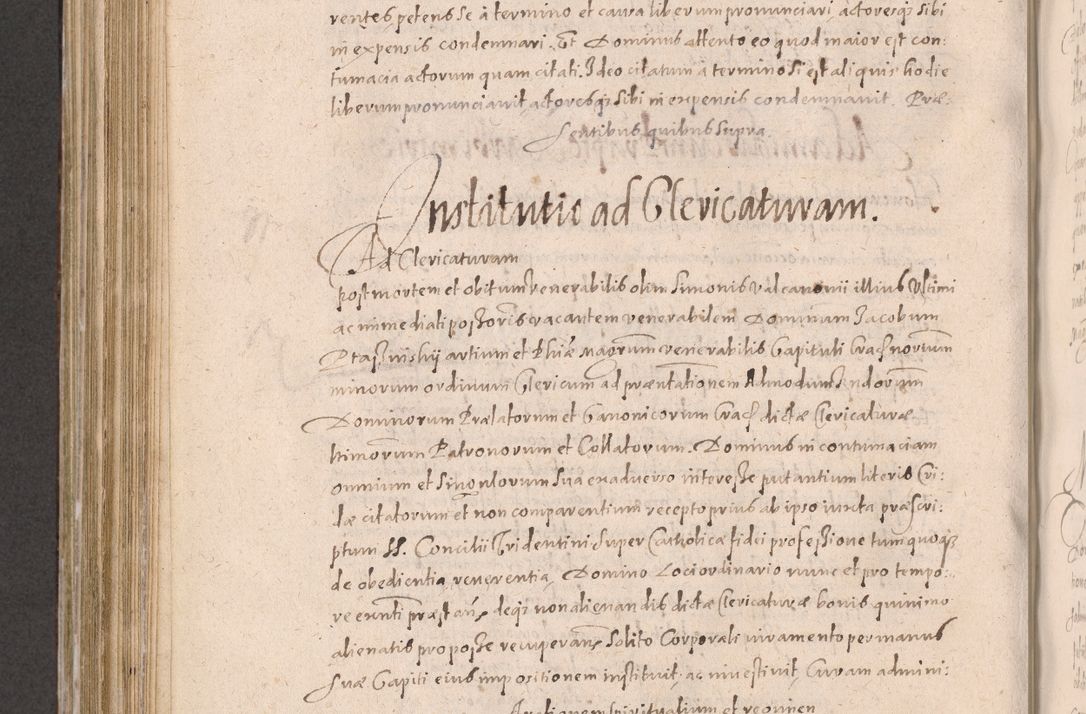 rentes petens se à termino et causa liberum pronunciari actoresqȝ sibi
in expensis condemnari. Et Dominus attento eo quod maior est con:
tumacia actorum quam citati. Ideo citatum à termino si est aliquis hodie
liberum pronunciavit, actoresqȝ sibi in expensis condemnavit. Præ:
sentibus quibus supra.
Institutio ad Clericaturam.
Ad Clericaturam
post mortem et obitum venerabilis olim Simonis Valcanovii illius ultimi
ac immediati possoris vacantem venerabilem Dominum Jacobum
Ptassinskij artium et Phiæ magrum venerabilis Capituli Crac
minorum ordinum Clericum ad præntationem Admodum
Dominorum Prælatorum et Canonicorum Crac dictæ Clericaturæ
ltimorum Patronorum et Collatorum. Dominus in contumaciam
omnium et singulorum sua exadverso interesse putantium literis Cri:
dæ citatorum et non comparentium recepto prius ab ipso iuxta præscri:
ptum SS. Concilii Tridentini super Catholicæ fidei professione tum quoqȝ
de obedientia, reverentia, Domino Loci ordinario nunc et pro tempo:
re exnti præstan, deqȝ non alienandis dictæ Clericaturæ bonis quinimo
alienatis pro posse recuperan, solito Corporali iuramento per manus
suæ Capiti eius impositionem instituit, ac investivit, Curam admini:
spiritualium et regimen